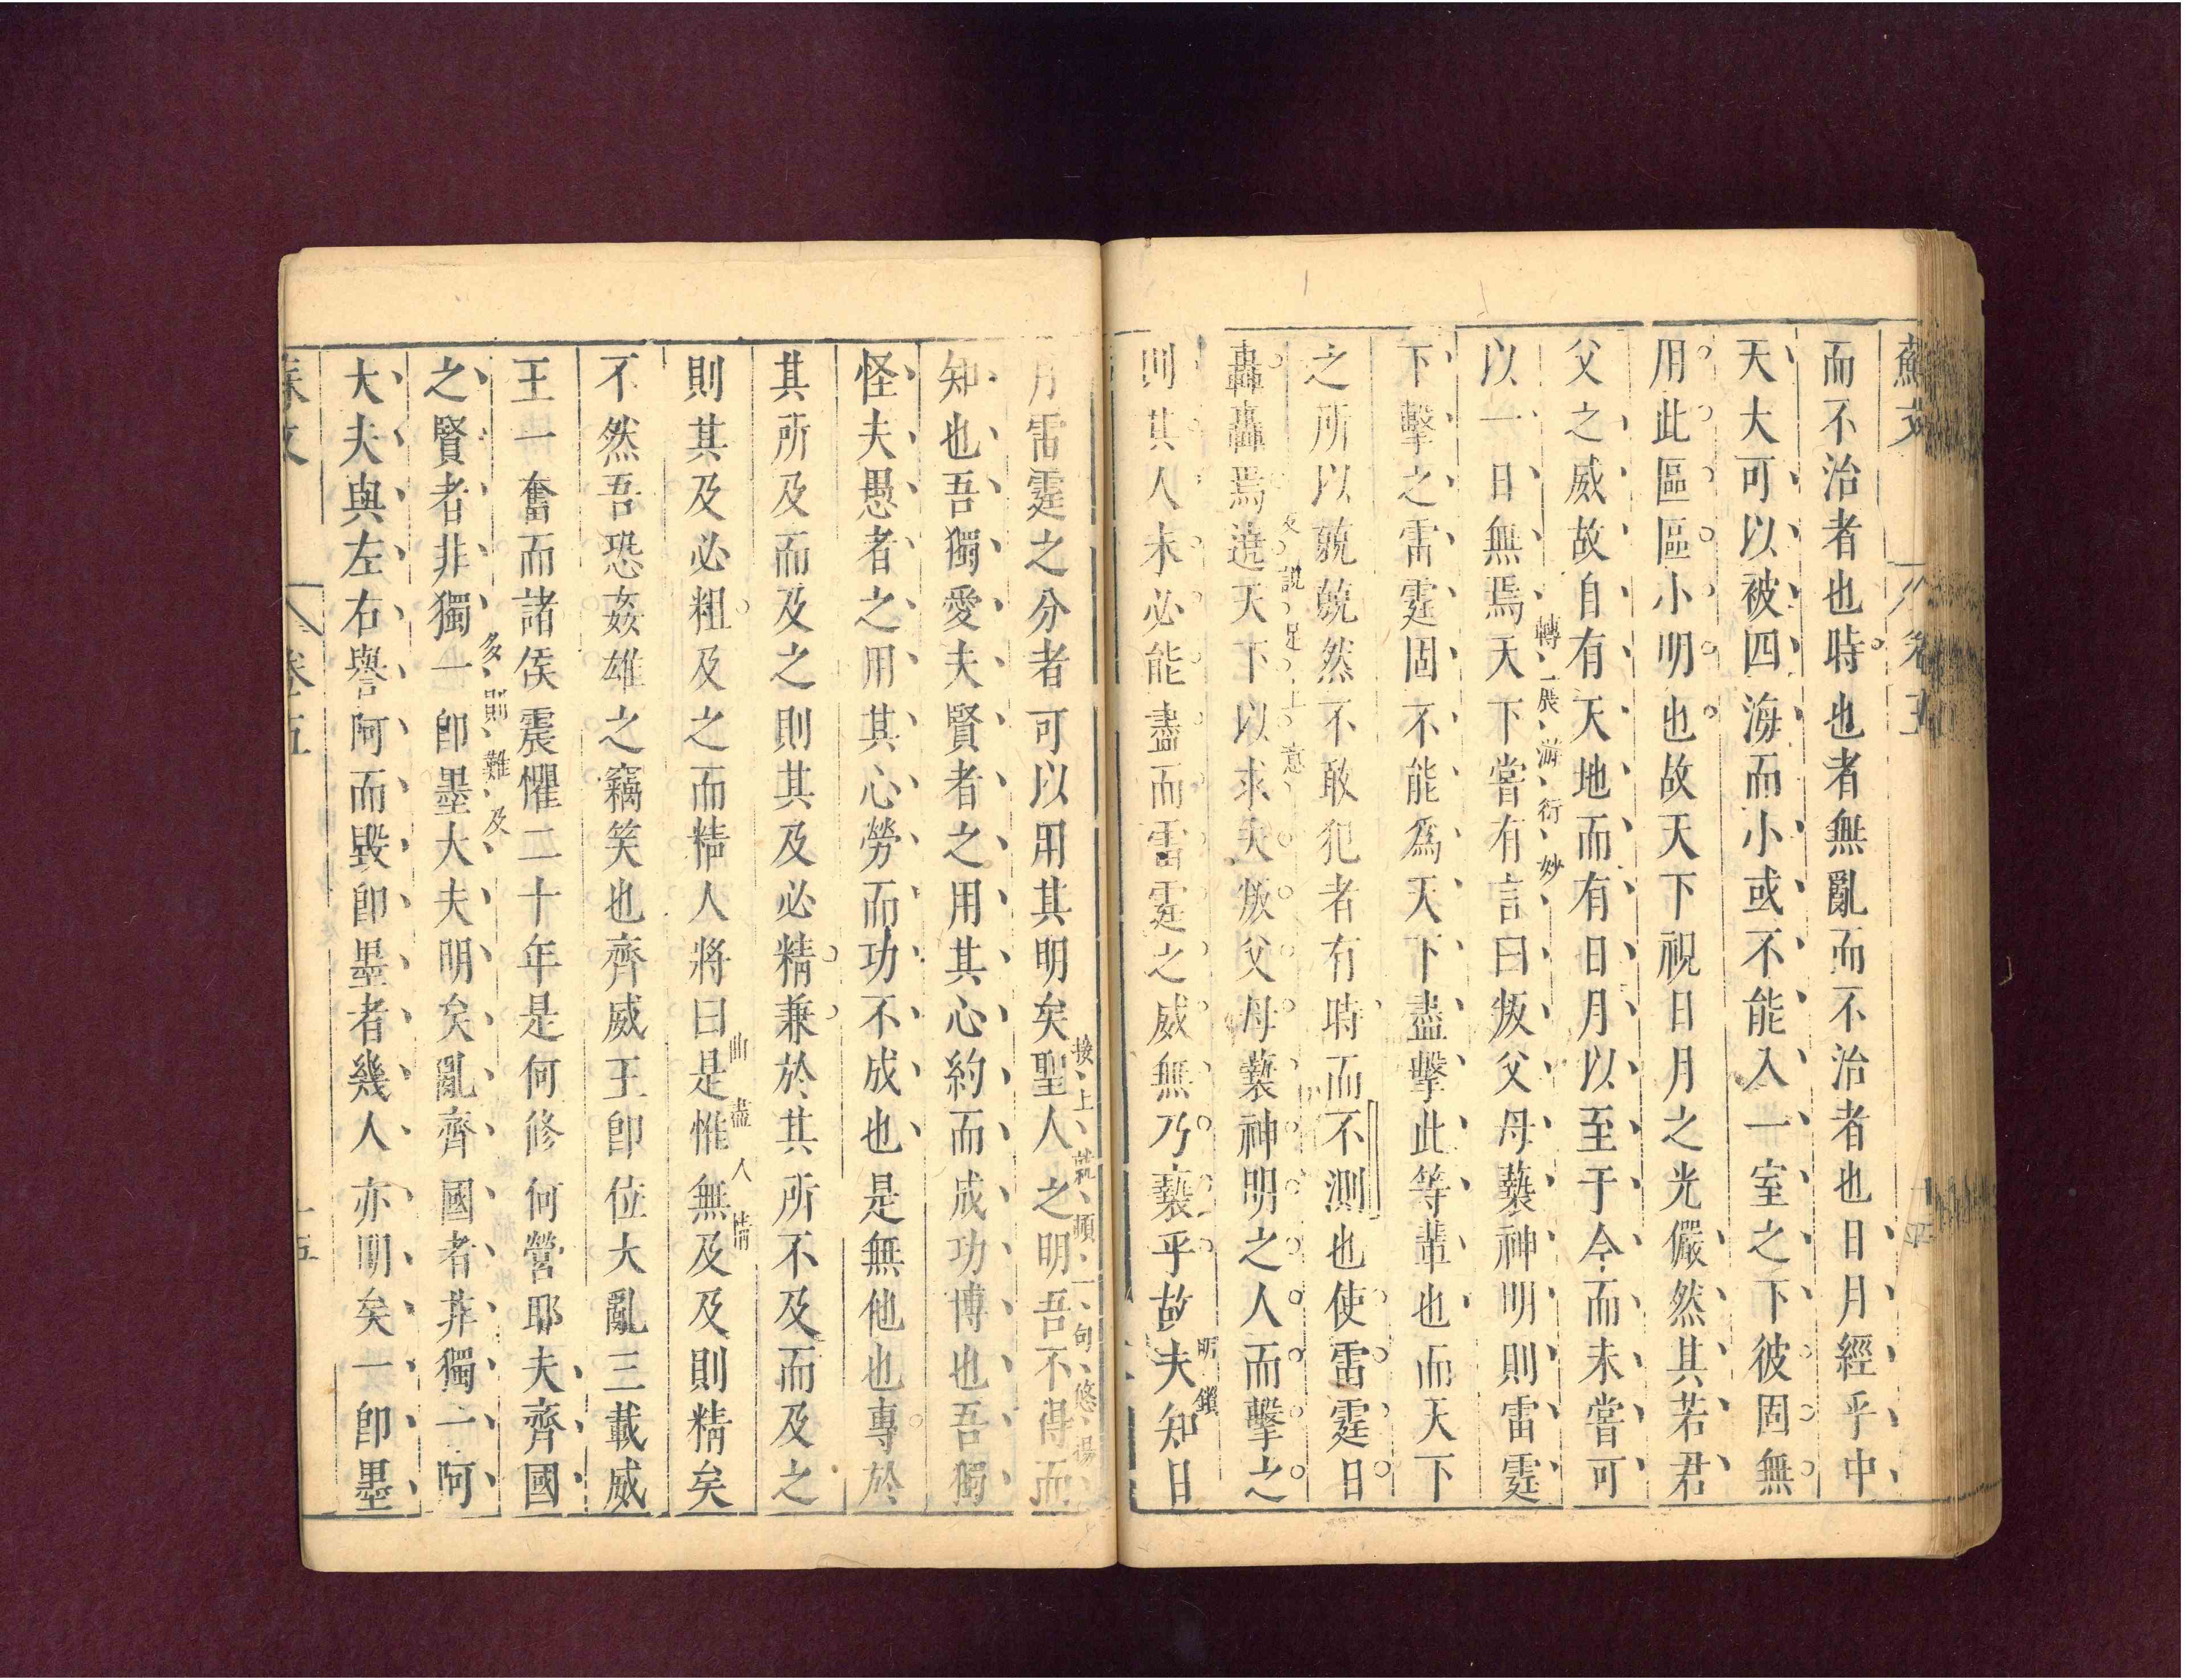 蘇文
卷五
而不治者也時也者無亂而不治者也日月經乎中
天大可以被四海而小或不能入一室之下彼固無
用此區區小明也故天下視日月之光儼然其若君
父之威故自有天地而有日月以至于今而未嘗可
以一日無焉天下嘗有言曰叛父母褻神明則雷霆
轉一展游衍妙
下擊之雷霆固不能為天下盡擊此等輩也而天下
之所以兢兢然不敢犯者有時而不測也使雷霆日
轟轟焉遶天下以求夫叛父母褻神明之人而擊之
說足上意
則其人未必能盡而雷霆之威無乃褻乎故夫知日
明鎖
月雷霆之分者可以用其明矣聖人之明吾不得而
知也吾獨愛夫賢者之用其心約而成功博也吾獨
怪夫愚者之用其心勞而功不成也是無他也專於
其所及而及之則其及必精兼於其所不及而及之
則其及必粗及之而精人將曰是惟無及及則精矣
曲盡人情
不然吾恐姦雄之竊笑也齊威王卽位大亂三載威
王一奮而諸侯震懼二十年是何修何營耶夫齊國
之賢者非獨一卽墨大夫明矣亂齊國者非獨一阿
多則難及
大夫與左右譽阿而毀卽墨者幾人亦明矣一卽墨
蘇文
卷五
十五